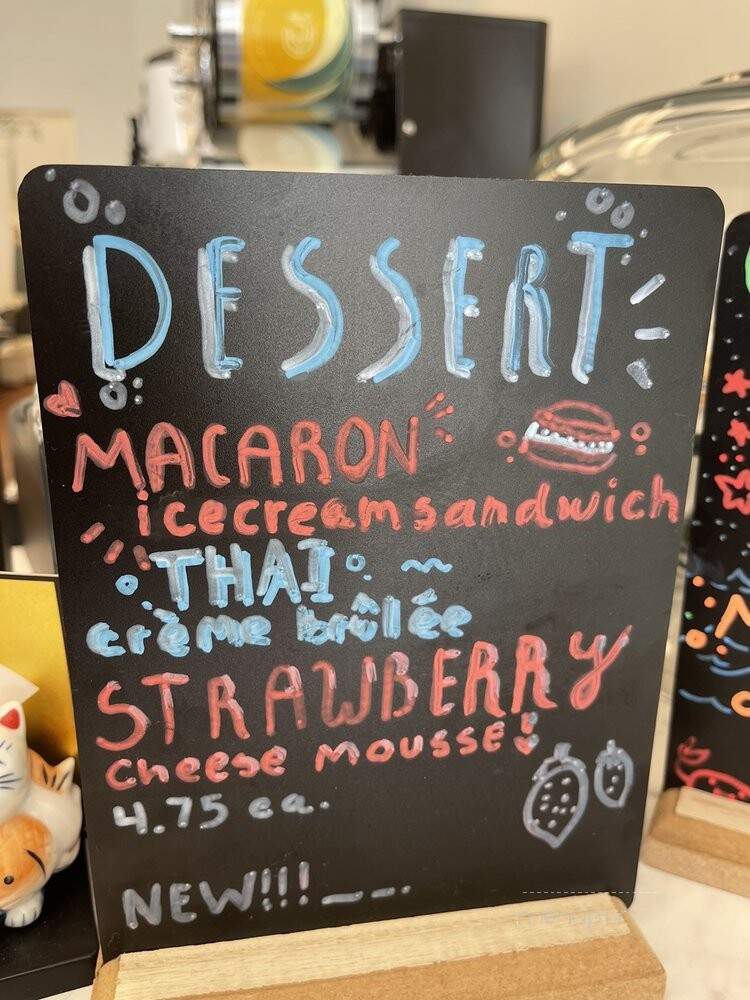 DESSERT
MACARON
icecream sandwich
THAI
crème brûlée
STRAWBERRY
cheese mousse
4.75 ea.
NEW!!! _ _ .